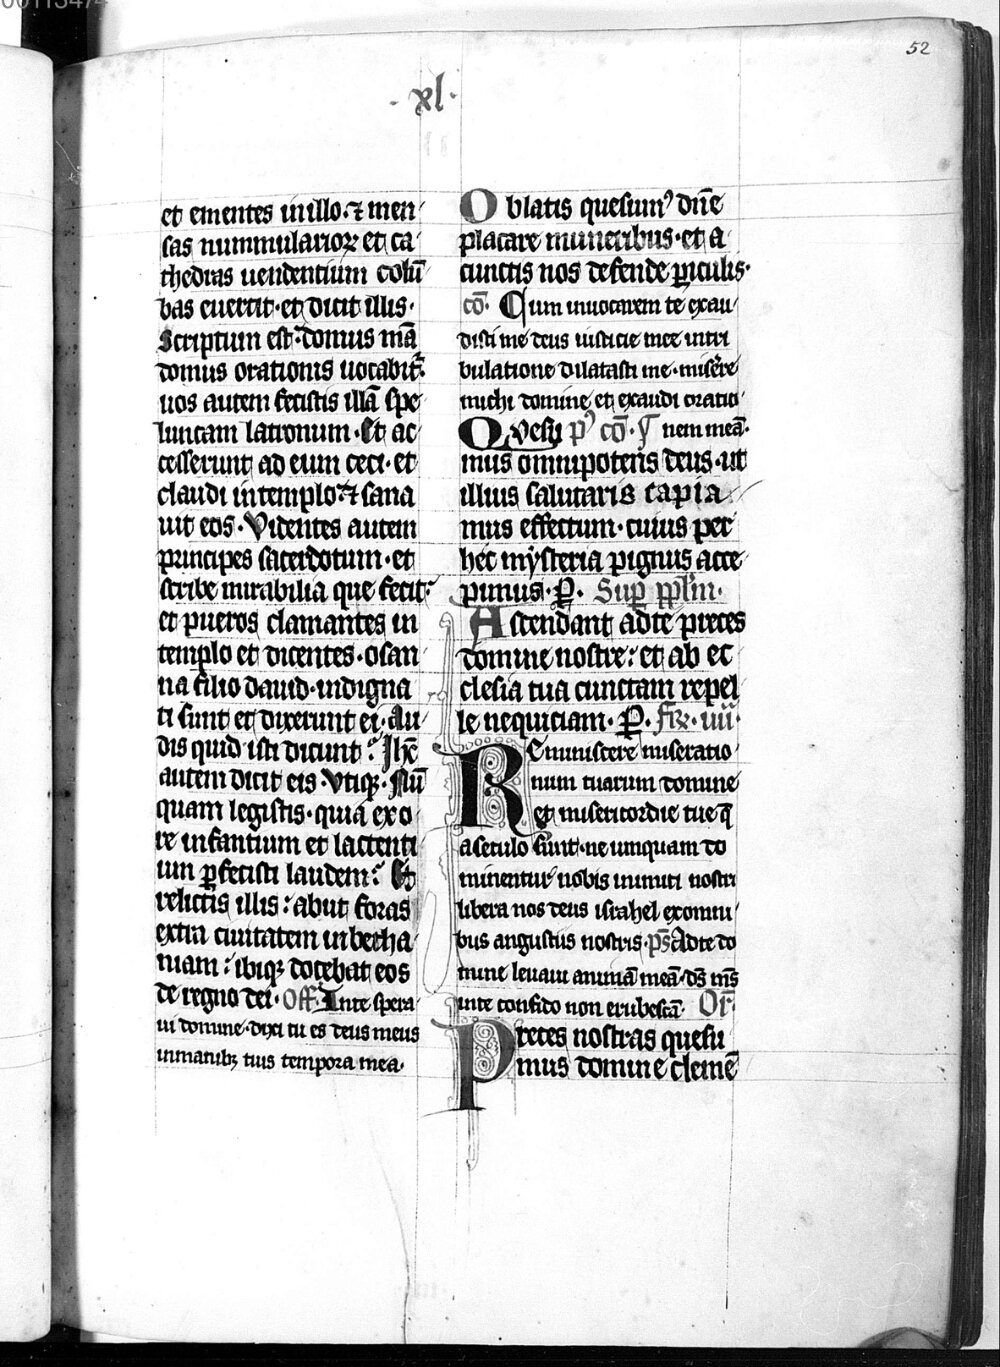 52
· xl ·
et ementes in illo · ⁊ men
sas nummularioꝝ et ca
thedras uendentium colū
bas euertit · et dicit illis ·
Scriptum est · domus mā
domus orationis uocabit᷑
uos autem fecistis illā spe
luncam latronum · Et ac
cesserunt ad eum ceci · et
claudi in templo · ⁊ sana
uit eos · Videntes autem
principes sacerdotum · et
scribe mirabilia que fecit ·
et pueros clamantes in
templo et dicentes · osan
na filio dauid · indigna
ti sunt et dixerunt ei · Au
dis quid isti dicunt? Ihc̄
autem dicit eis · Vtiqꝫ · Nū
quam legistis · quia ex o
re infantium et lactenti
um ꝑfecisti laudem? Et
relictis illis : abiit foras
extra ciuitatem in betha
niam : ibiqꝫ docebat eos
de regno dei · Off · In te spera
ui domine · dixi tu es deus meus
in manibꝫ tuis tempora mea ·
Oblatis quesumꝰ dn̄e
placare muneribus · et a
cunctis nos defende ꝑiculis ·
cō · Cum inuocarem te exau
disti me deus iusticie mee in tri
bulatione dilatasti me · misere
michi domine et exaudi oratio
Quesu pꝰ cō · nem meā ·
mus omnipotens deus · ut
illius salutaris capia
mus effectum · cuius per
hec mysteria pignus acce
pimus · ꝑ · Sup ppl̄m ·
Ascendant ad te preces
domine nostre : et ab ec
clesia tua cunctam repel
le nequiciam · ꝑ · Fr̄e · iiii ·
Reminiscere miseratio
num tuarum domine
et misericordie tue q̄
a seculo sunt · ne umquam do
minentur nobis inimici nostri
libera nos deus israhel ex omni
bus angustiis nostris · ps̄ Ad te do
mine leuaui animā meā · ds̄ ms̄
in te confido non erubescā · Or̄
Preces nostras quesu
mus domine clemē